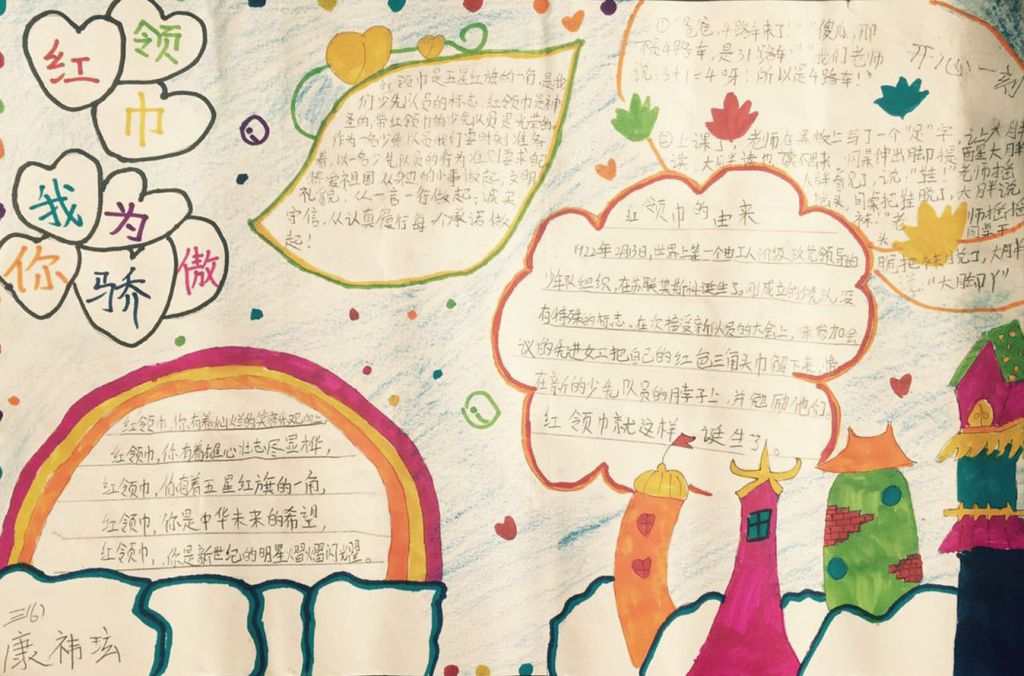 红领
巾
我为
你骄傲
红领巾是五星红旗的一角，是我
们少先队员的标志，红领巾是神
圣的，带红领巾的少先队员是光荣的。
作为一名少先队员我们要时刻准备
着，以一名少先队员的行为准则要求自己
热爱祖国从身边的小事做起，文明
礼貌，从一言一行做起；诚实
守信，从认真履行每个承诺做
起！
开心一刻
①"爸爸，4路车来了！""傻瓜，那
不是4路车，是31路车""我们老师
说：3+1=4呀！所以是4路车！"
②上课了，老师在黑板上写了一个"足"字，让大胖
"大脚丫"
红领巾的由来
1922年2月13日，世界上第一个由工人阶级政党领导的
少年队组织，在苏联莫斯科诞生了。刚成立的少先队没
有特殊的标志。在次接受新队员的大会上，来参加会
议的先进女工把自己的红色三角头巾解下来，
在新的少先队员的脖子上，并勉励他们
红领巾就这样 诞生了。
红领巾，你有着灿烂的笑容
红领巾，你有着雄心壮志尽显
红领巾，你有着五星红旗的一角，
红领巾，你是中华未来的希望，
红领巾，你是新世纪的明星熠熠闪耀。
三(6)
康祎玹